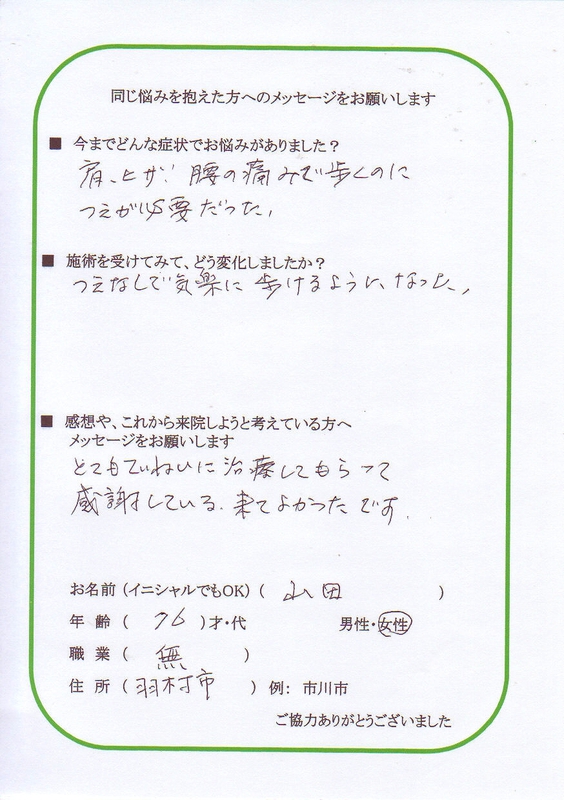 同じ悩みを抱えた方へのメッセージをお願いします
■ 今までどんな症状でお悩みがありましたか？
肩、ヒザ、腰の痛みで歩くのに
つえが必要だった。
■ 施術を受けてみて、どう変化しましたか？
つえなしで気楽に歩けるように、なった。
■ 感想や、これから来院しようと考えている方へ
メッセージをお願いします
とてもていねいに治療してもらって
感謝している。来てよかったです。
お名前（イニシャルでもOK）（ 山田 ）
年 齢 （ 76 ）才・代 男性・女性
職 業 （ 無 ）
住 所 （ 羽村市 ） 例： 市川市
ご協力ありがとうございました